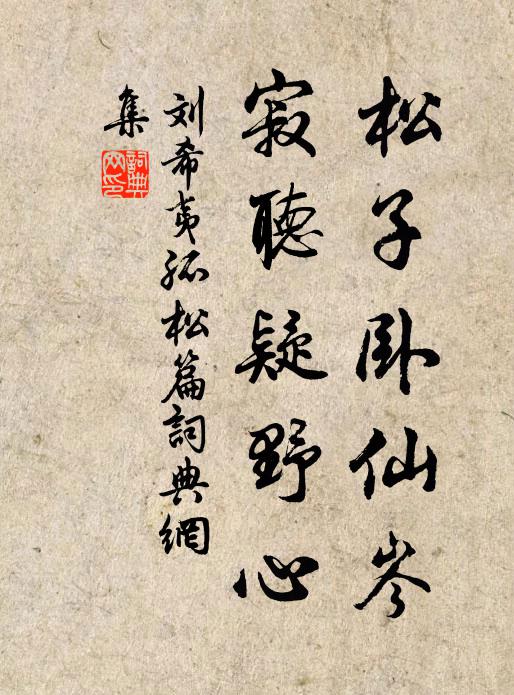 松子卧仙岑
寂聽疑野心
刘希夷孤松篇詞典網
集
詞典网印